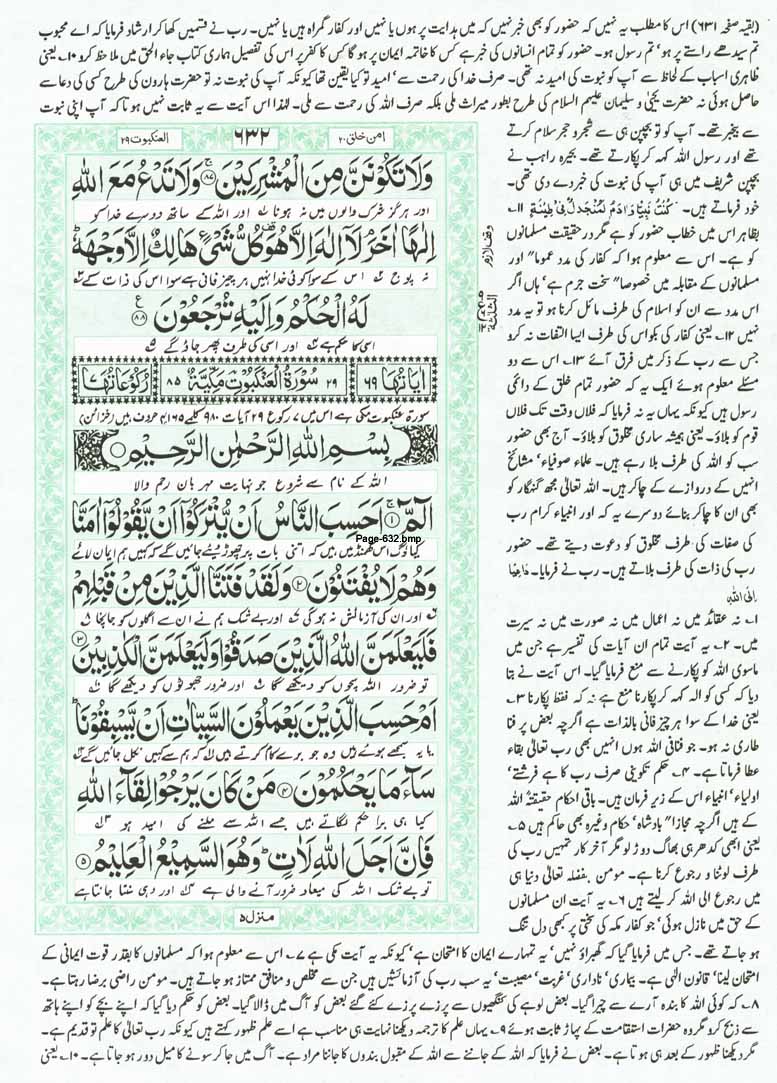 (بقیہ صفحہ ۶۳۱) اس کا مطلب یہ نہیں کہ حضور کو بھی خبر نہیں کہ میں ہدایت پر ہوں یا نہیں اور کفار گمراہ ہیں یا نہیں۔ رب نے قسمیں کھا کر ارشاد فرمایا کہ اے محبوب
تم سیدھے راستے پر ہو‘ تم رسول ہو۔ حضور کو تمام انسانوں کی خبر ہے کس کا خاتمہ ایمان پر ہو گا کس کا کفر پر اس کی تفصیل ہماری کتاب جاء الحق میں ملاحظہ کرو ۱۰۔ یعنی
ظاہری اسباب کے لحاظ سے آپ کو نبوت کی امید نہ تھی۔ صرف خدا کی رحمت سے‘ امید تو کیا یقین تھا کیونکہ آپ کی نبوت نہ تو حضرت ہارون کی طرح کسی کی دعا سے
حاصل ہوئی نہ حضرت یحییٰ و سلیمان علیہم السلام کی طرح بطور میراث ملی بلکہ صرف اللہ کی رحمت سے ملی۔ لہٰذا اس آیت سے یہ ثابت نہیں ہوتا کہ آپ اپنی نبوت
سے بےخبر تھے۔ آپ کو تو بچپن ہی سے شجر و حجر سلام کرتے
تھے اور رسول اللہ کہہ کر پکارتے تھے۔ بحیرہ راہب نے
بچپن شریف میں ہی آپ کی نبوت کی خبر دے دی تھی۔
خود فرماتے ہیں۔ كُنْتُ نَبِيًّا وَّاٰدَمُ لَمُنْجَدِلٌ فِيْ طِيْنَتِهٖ ۱۱۔
بظاہر اس میں خطاب حضور کو ہے مگر در حقیقت مسلمانوں
کو ہے۔ اس سے معلوم ہوا کہ کفار کی مدد عموما" اور
مسلمانوں کے مقابلہ میں خصوصا" سخت جرم ہے‘ ہاں اگر
اس مدد سے ان کو اسلام کی طرف مائل کرنا ہو تو یہ مدد
نہیں ۱۲۔ یعنی کفار کی بکواس کی طرف ایسا التفات نہ کرو
جس سے رب کے ذکر میں فرق آئے ۱۳۔ اس سے دو
مسئلے معلوم ہوئے ایک یہ کہ حضور تمام خلق کے دائمی
رسول ہیں کیونکہ یہاں یہ نہ فرمایا کہ فلاں وقت تک فلاں
قوم کو بلاؤ۔ یعنی ہمیشہ ساری مخلوق کو بلاؤ۔ آج بھی حضور
سب کو اللہ کی طرف بلا رہے ہیں۔ علماء صوفیاء‘ مشائخ
انہیں کے دروازے کے چاکر ہیں۔ اللہ تعالیٰ مجھ گنہگار کو
بھی ان کا چاکر بنائے دوسرے یہ کہ اور انبیاء کرام رب
کی صفات کی طرف مخلوق کو دعوت دیتے تھے۔ حضور
رب کی ذات کی طرف بلاتے ہیں۔ رب نے فرمایا۔ دَاعِيًا
اِلَى اللّٰهِ
۱۔ نہ عقائد میں نہ اعمال میں نہ صورت میں نہ سیرت
میں۔ ۲۔ یہ آیت تمام ان آیات کی تفسیر ہے جن میں
ماسوی اللہ کو پکارنے سے منع فرمایا گیا۔ اس آیت نے بتا
دیا کہ کسی کو الہ کہہ کر پکارنا منع ہے نہ کہ فقط پکارنا ۳۔
یعنی خدا کے سوا ہر چیز فانی بالذات ہے اگرچہ بعض پر فنا
طاری نہ ہو۔ جو فنا فی اللہ ہوں انہیں بھی رب تعالیٰ بقاء
عطا فرماتا ہے۔ ۴۔ حکم تکوینی صرف رب کا ہے فرشتے‘
اولیاء‘ انبیاء اس کے زیر فرمان ہیں۔ باقی احکام حقیقتہ اللہ
کے ہیں اگرچہ مجازا" بادشاہ‘ حکام وغیرہ بھی حاکم ہیں ۵۔
یعنی ابھی کدھر ہی بھاگ دوڑ لو مگر آخر کار تمہیں رب کی
طرف لوٹنا و رجوع کرنا ہے۔ مومن بفضلہ تعالیٰ دنیا ہی
میں رجوع الی اللہ کر لیتے ہیں ۶۔ یہ آیت ان مسلمانوں
کے حق میں نازل ہوئی‘ جو کفار مکہ کی سختی پر کبھی دل تنگ
ہو جاتے تھے۔ جس میں فرمایا گیا کہ گھبراؤ نہیں‘ یہ تمہارے ایمان کا امتحان ہے‘ کیونکہ یہ آیت مکی ہے ۷۔ اس سے معلوم ہوا کہ مسلمانوں کا بقدر قوت ایمانی کے
امتحان لینا‘ قانون الٰہی ہے۔ بیماری‘ ناداری‘ غربت‘ مصیبت‘ یہ سب رب کی آزمائشیں ہیں جن سے مخلص و منافق ممتاز ہو جاتے ہیں۔ مومن راضی برضا رہتا ہے۔
۸۔ کہ کوئی اللہ کا بندہ آرے سے چیرا گیا۔ بعض لوہے کی کنگھیوں سے پرزے پرزے کئے گئے بعض کو آگ میں ڈالا گیا۔ بعض کو حکم دیا گیا کہ اپنے بچے کو اپنے ہاتھ
سے ذبح کرو مگر وہ حضرات استقامت کے پہاڑ ثابت ہوئے ۹۔ یہاں علم کا ترجمہ دیکھنا نہایت ہی مناسب ہے اسے علم ظہور کہتے ہیں کیونکہ رب تعالیٰ کا علم تو قدیم ہے۔
مگر دیکھنا ظہور کے بعد ہی ہوتا ہے۔ بعض نے فرمایا کہ اللہ کے جاننے سے اللہ کے مقبول بندوں کا جاننا مراد ہے۔ آگ میں جا کر سونے کا میل دور ہو جاتا ہے۔ ۱۰۔ یعنی
امن خلق ۲۰
۶۳۲
العنکبوت ۲۹
وَلَا تَكُوْنَنَّ مِنَ الْمُشْرِكِيْنَ ۸۷ وَلَا تَدْعُ مَعَ اللّٰهِ
اور ہرگز شرک والوں میں نہ ہونا اور اللہ کے ساتھ دوسرے خدا کو
اِلٰهًا اٰخَرَ لَآ اِلٰهَ اِلَّا هُوَ كُلُّ شَيْءٍ هَالِكٌ اِلَّا وَجْهَهٗ
نہ پوج اس کے سوا کوئی خدا نہیں ہر چیز فانی ہے سوا اس کی ذات کے
لَهُ الْحُكْمُ وَاِلَيْهِ تُرْجَعُوْنَ ۸۸
اسی کا حکم ہے اور اسی کی طرف پھر جاؤ گے
اٰيَاتُهَا ۶۹
۲۹ سُوْرَةُ الْعَنْكَبُوْتِ مَكِّيَّةٌ ۸۵
رُكُوْعَاتُهَا ۷
بِسْمِ اللّٰهِ الرَّحْمٰنِ الرَّحِيْمِ
اللہ کے نام سے شروع جو نہایت مہربان رحم والا
الٓمّٓ ۱ اَحَسِبَ النَّاسُ اَنْ يُّتْرَكُوْٓا اَنْ يَّقُوْلُوْٓا اٰمَنَّا
Page-632.bmp
کیا لوگ اس گھمنڈ میں ہیں کہ اتنی بات پر چھوڑ دیئے جائیں گے کہ کہیں ہم ایمان لائے
وَهُمْ لَا يُفْتَنُوْنَ ۲ وَلَقَدْ فَتَنَّا الَّذِيْنَ مِنْ قَبْلِهِمْ
اور ان کی آزمائش نہ ہوگی اور بے شک ہم نے ان سے اگلوں کو جانچا
فَلَيَعْلَمَنَّ اللّٰهُ الَّذِيْنَ صَدَقُوْا وَلَيَعْلَمَنَّ الْكٰذِبِيْنَ ۳
تو ضرور اللہ سچوں کو دیکھے گا اور ضرور جھوٹوں کو دیکھے گا
اَمْ حَسِبَ الَّذِيْنَ يَعْمَلُوْنَ السَّيِّاٰتِ اَنْ يَّسْبِقُوْنَا
یا یہ سمجھے ہوئے ہیں وہ جو برے کام کرتے ہیں کہ ہم سے کہیں نکل جائیں گے
سَآءَ مَا يَحْكُمُوْنَ ۴ مَنْ كَانَ يَرْجُوْا لِقَآءَ اللّٰهِ
کیا ہی برا حکم لگاتے ہیں جسے اللہ سے ملنے کی امید ہو
فَاِنَّ اَجَلَ اللّٰهِ لَاٰتٍ وَهُوَ السَّمِيْعُ الْعَلِيْمُ ۵
تو بے شک اللہ کی میعاد ضرور آنے والی ہے اور وہی سنتا جانتا ہے
منزل ۵